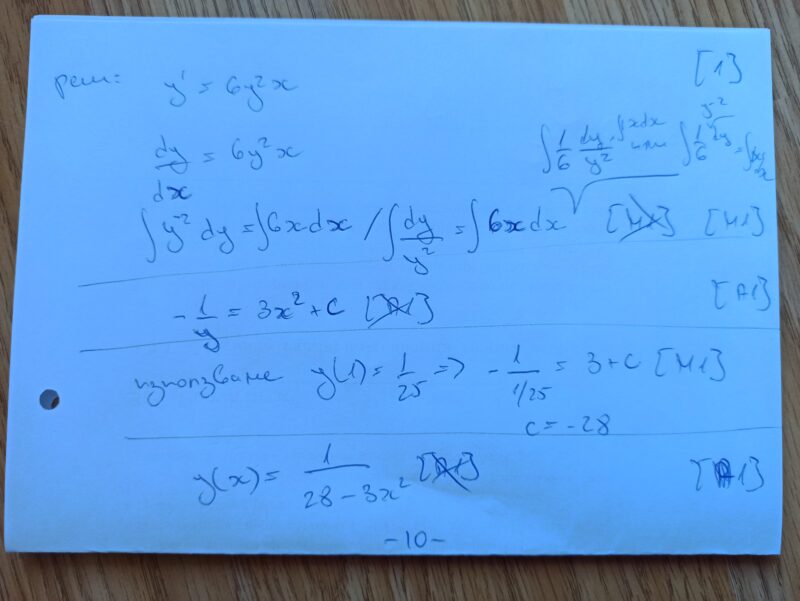 реш: y' = 6y²x [1]
dy/dx = 6y²x
∫ 1/6 dy/y² = ∫xdx или ∫ 1/6 y⁻² dy =
∫ y⁻² dy = ∫6xdx / ∫ dy/y² = ∫ 6xdx [M1] [M1]
- 1/y = 3x² + c [A1] [A1]
използваме y(1) = 1/25 => - 1/(1/25) = 3 + c [M1]
c = -28
y(x) = 1/(28 - 3x²) [A1] [A1]
-10-